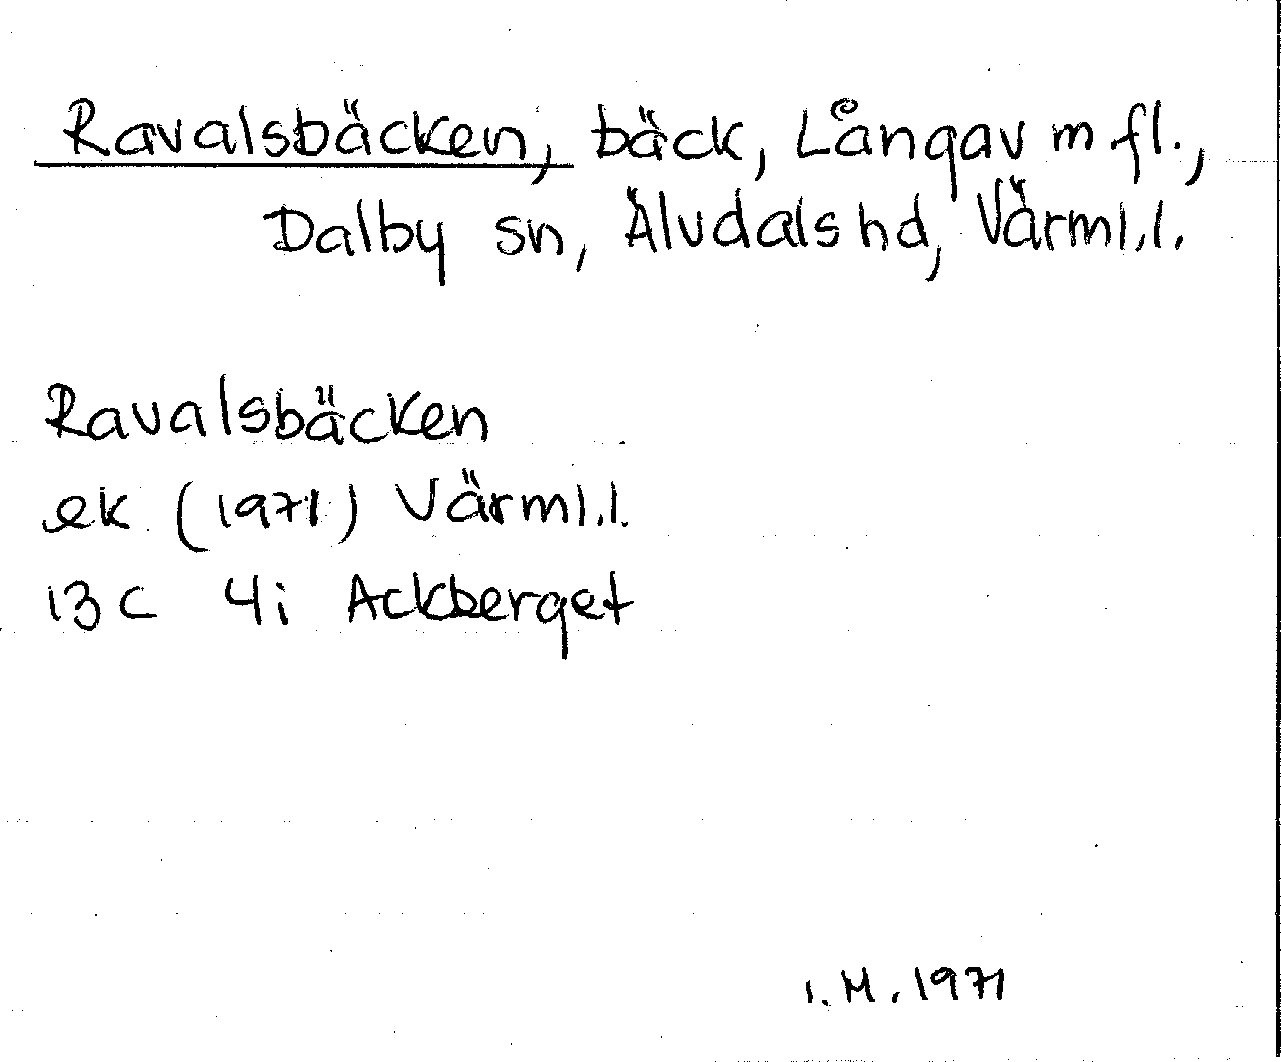 Ravalsbäcken, bäck, Långav m fl.,
Dalby sn, Älvdals hd, Värml.l.
Ravalsbäcken
ek (1971) Värml.l.
13C 4i Ackberget
I.M.1971